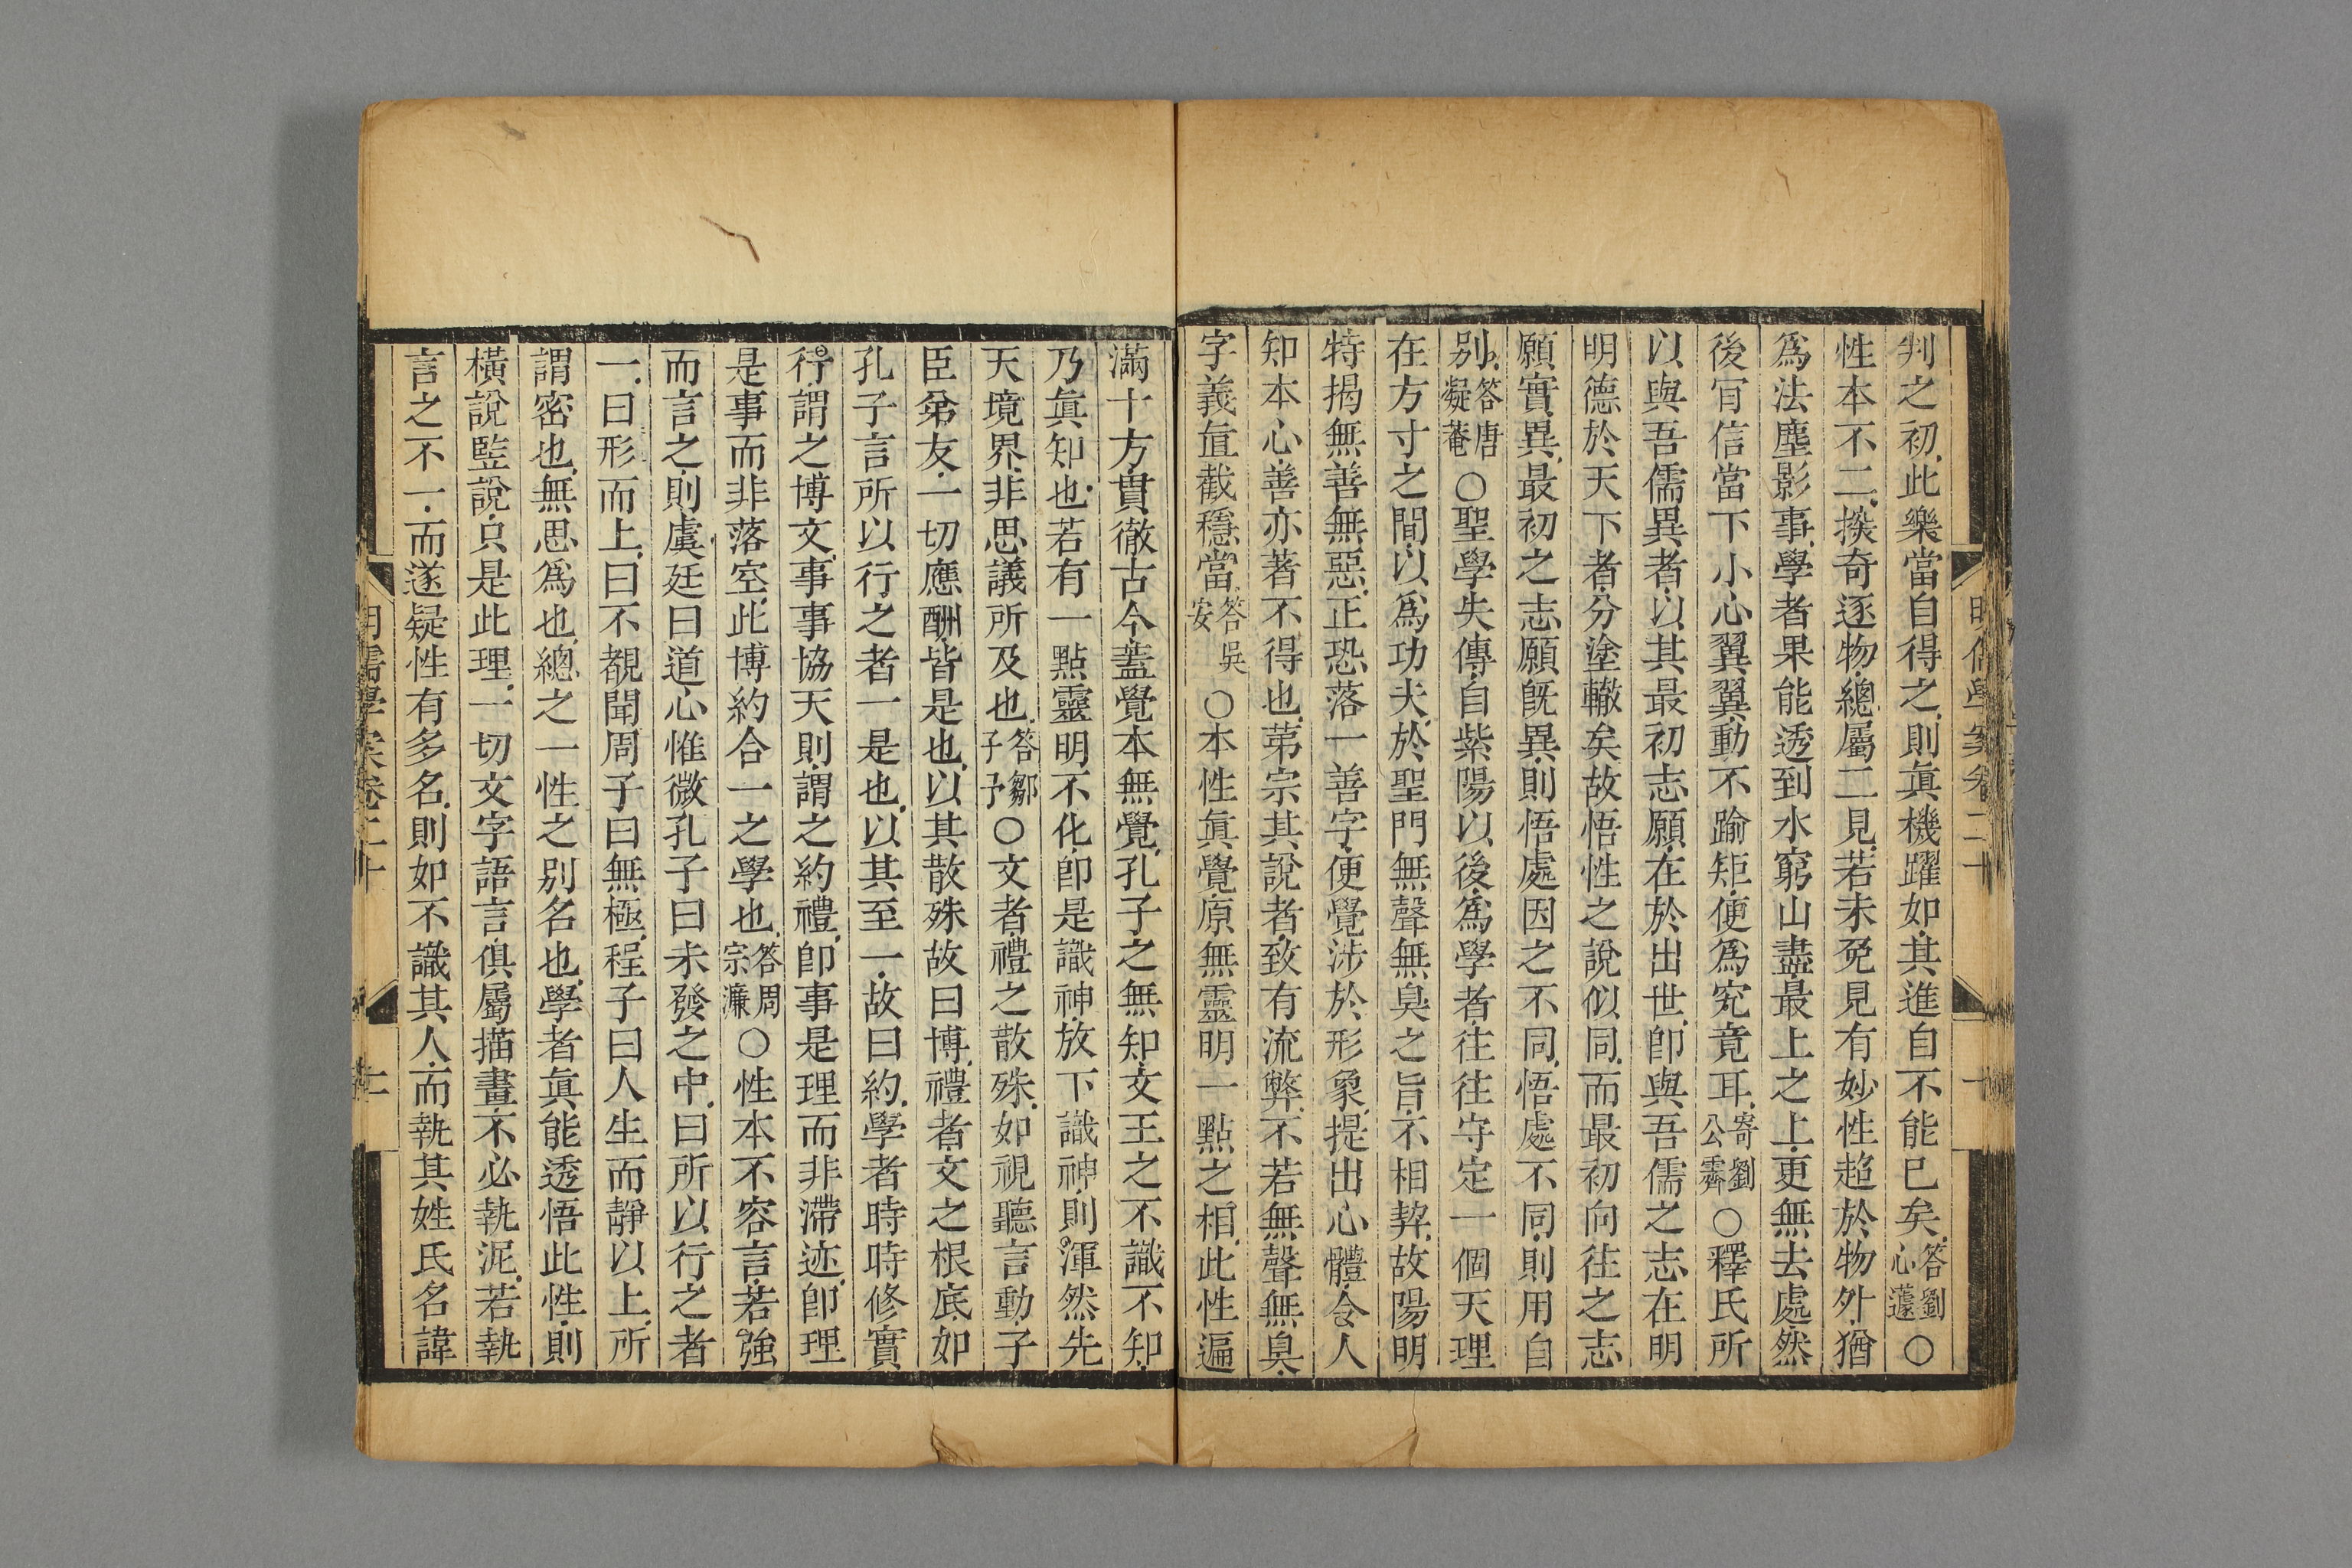 判之初此樂當自得之則眞機躍如其進自不能已矣答劉心蘧○
性本不二揬奇逐物總屬二見若未免見有妙性超於物外猶
爲法塵影事學者果能透到水窮山盡最上之上更無去處然
後肎信當下小心翼翼動不踰矩便爲究竟耳寄劉公霽○釋氏所
以與吾儒異者以其最初志願在於出世卽與吾儒之志在明
明德於天下者分塗轍矣故悟性之說似同而最初向往之志
願實異最初之志願旣異則悟處因之不同悟處不同則用自
別答唐凝菴○聖學失傳自紫陽以後爲學者往往守定一個天理
在方寸之間以爲功夫於聖門無聲無臭之旨不相契故陽明
特揭無善無惡正恐落一善字便覺涉於形象提出心體令人
知本心善亦著不得也第宗其說者致有流弊不若無聲無臭
字義直截穩當答吳安○本性眞覺原無靈明一點之相此性遍
滿十方貫徹古今蓋覺本無覺孔子之無知文王之不識不知
乃眞知也若有一點靈明不化卽是識神放下識神則渾然先
天境界非思議所及也答鄒子予○文者禮之散殊如視聽言動子
臣弟友一切應酬皆是也以其散殊故曰博禮者文之根底如
孔子言所以行之者一是也以其至一故曰約學者時時修實
行謂之博文事事協天則謂之約禮卽事是理而非滯迹卽理
是事而非落空此博約合一之學也答周宗濂○性本不容言若強
而言之則虞廷曰道心惟微孔子曰未發之中曰所以行之者
一曰形而上曰不覩聞周子曰無極程子曰人生而靜以上所
謂密也無思爲也總之一性之別名也學者眞能透悟此性則
橫說竪說只是此理一切文字語言俱屬描畫不必執泥若執
言之不一而遂疑性有多名則如不識其人而執其姓氏名諱
明儒學案卷二十